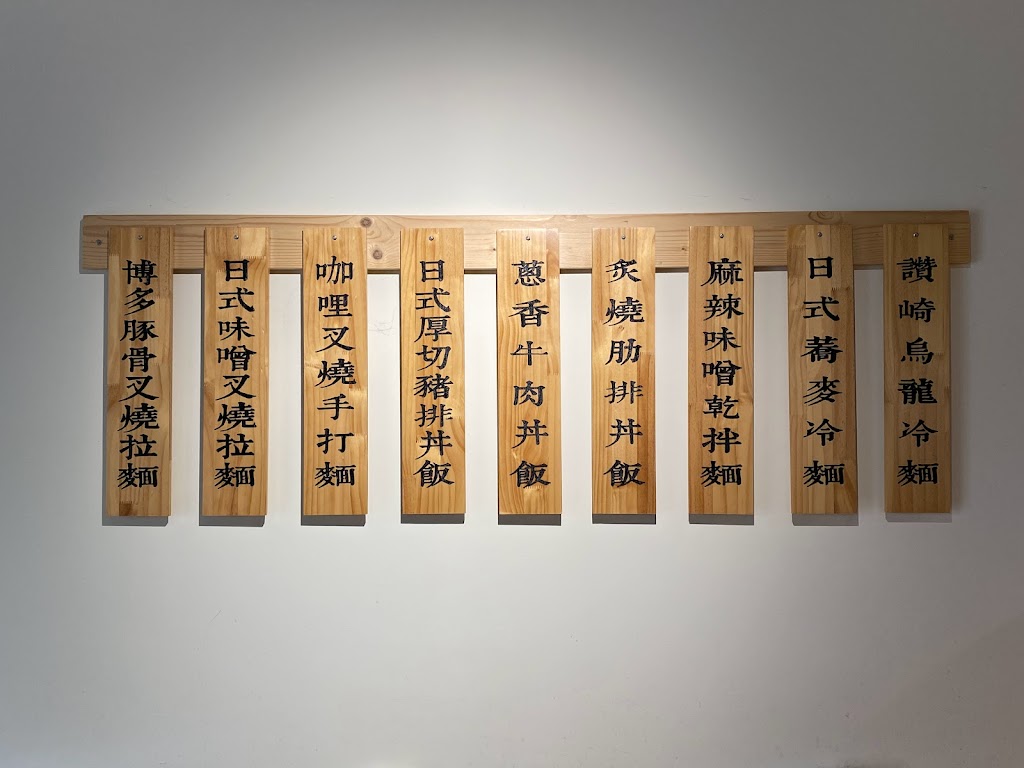 讚崎烏龍冷麵
日式蕎麥冷麵
麻辣味噌乾拌麵
炙燒肋排丼飯
蔥香牛肉丼飯
日式厚切豬排丼飯
咖哩叉燒手打麵
日式味噌叉燒拉麵
博多豚骨叉燒拉麵